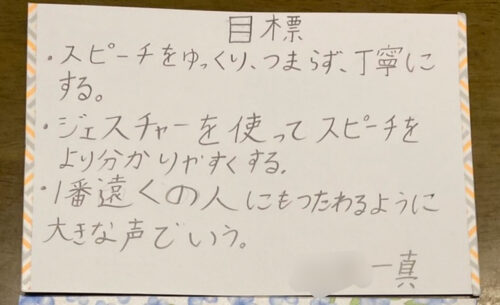 目標
・スピーチをゆっくり、つまらず、丁寧に
する。
・ジェスチャーを使ってスピーチを
より分かりやすくする.
・1番遠くの人にもつたわるように
大きな声でいう。
一真